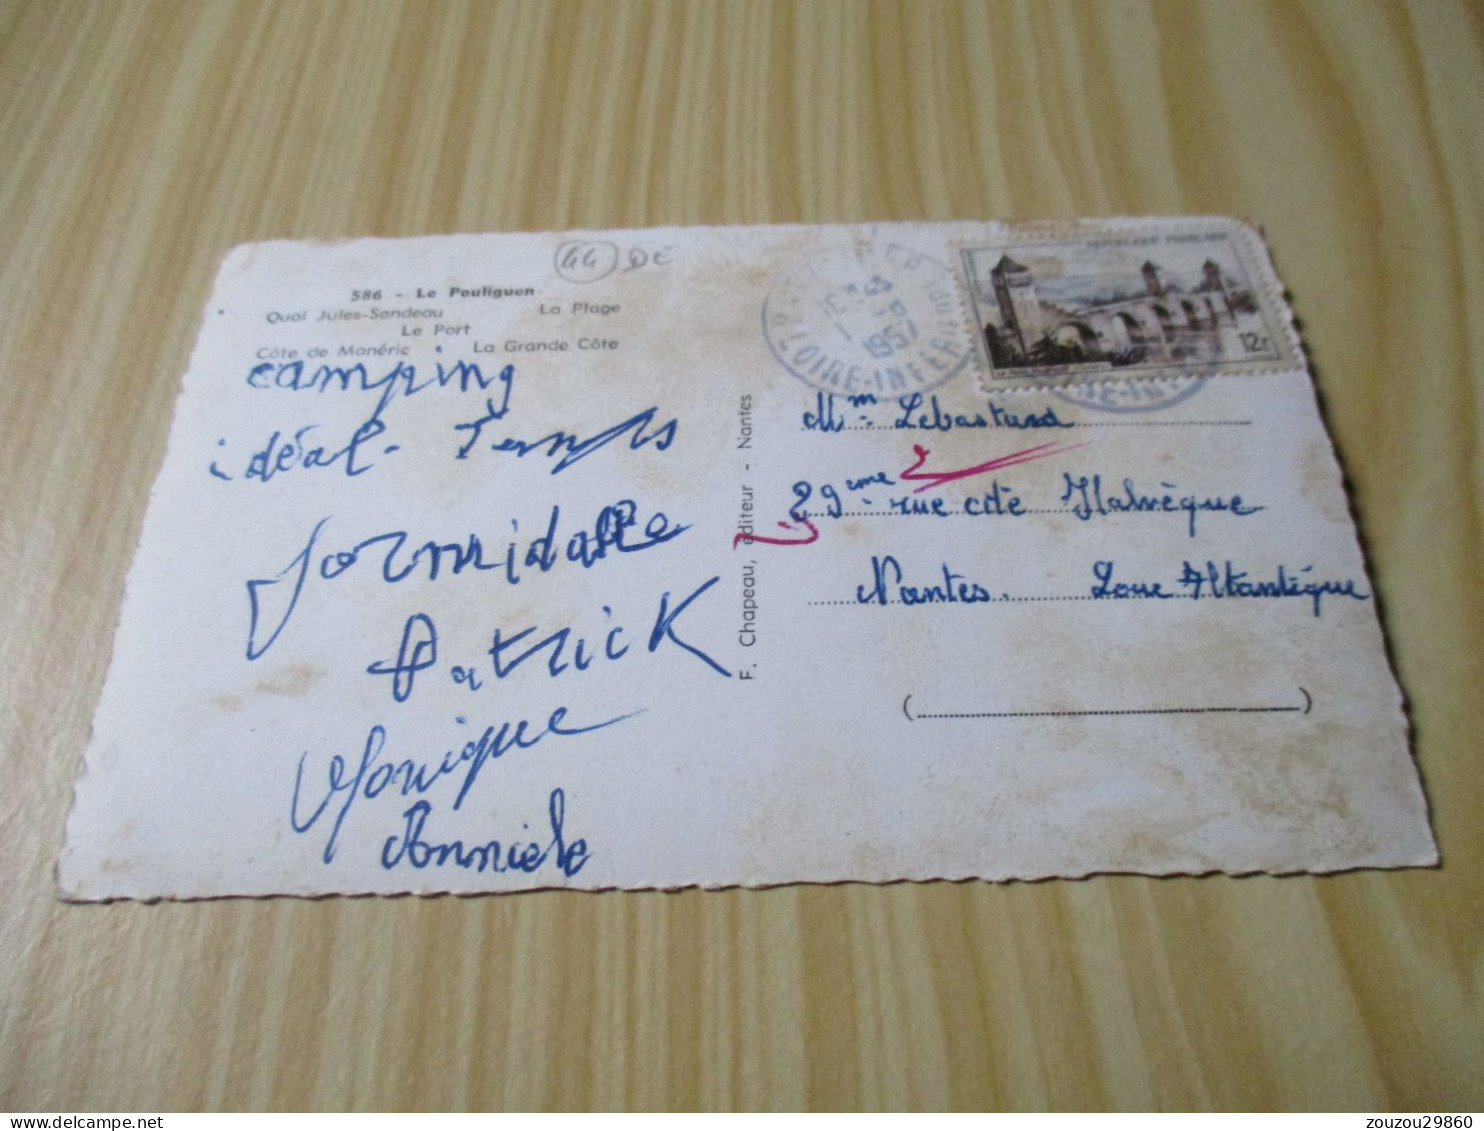 44 DE
586 - Le Pouliguen
Quai Jules-Sandeau La Plage
Le Port
Côte de Manéric La Grande Côte
camping
idéal - Temps
formidable
Patrick
Monique
Anniele
F. Chapeau, éditeur - Nantes
1957
LOIRE-INFERIEURE
REPUBLIQUE FRANÇAISE
12F
Mm Lebastard
29 rue cité Halvêque
Nantes. Loire Atlantique
(
)
zouzou29860